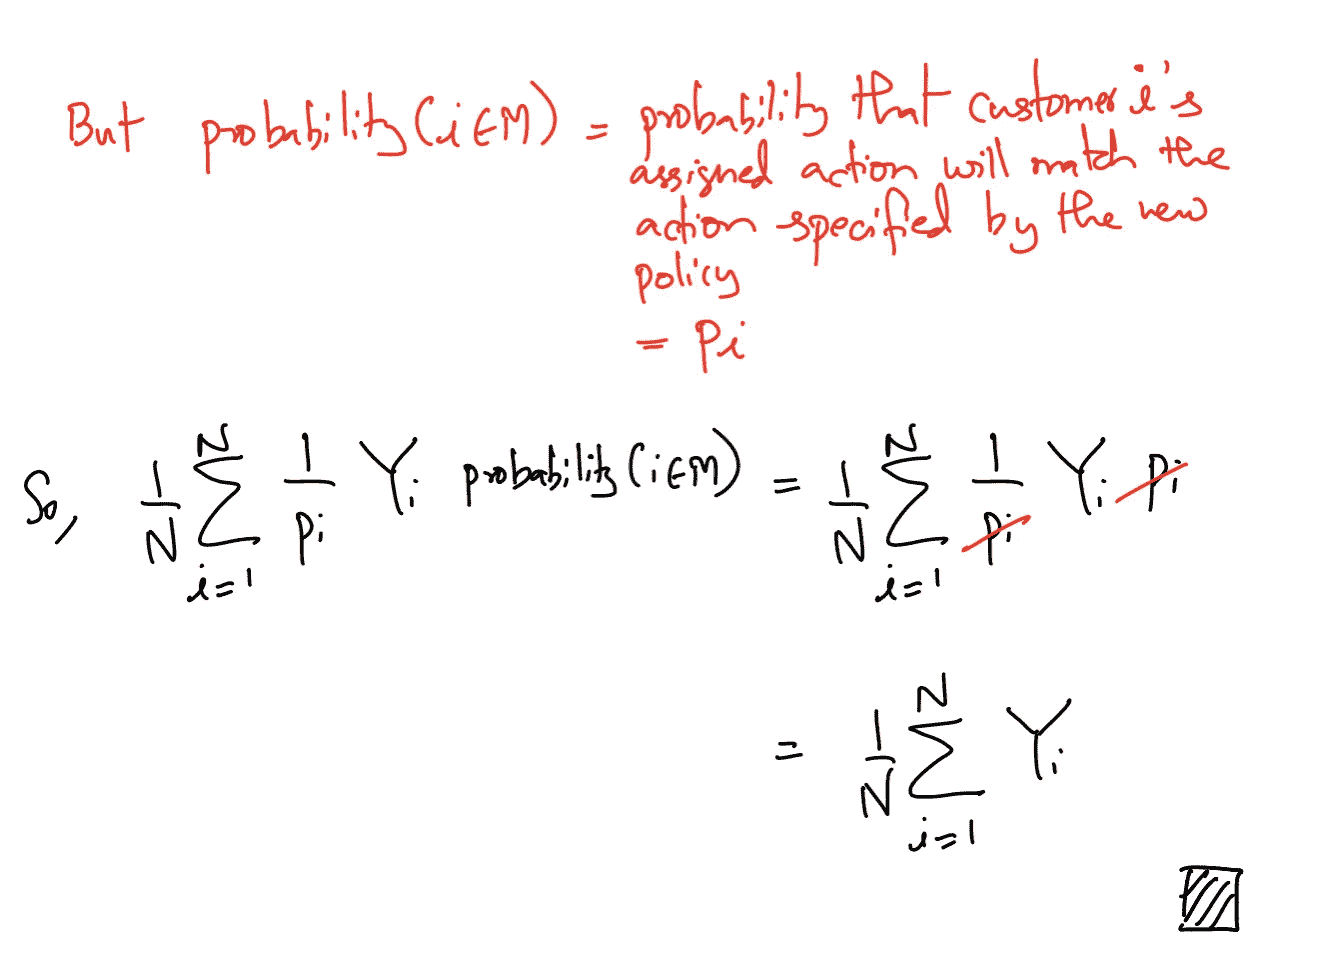 But probability(i∈M) = probability that customer i's
assigned action will match the
action specified by the new
policy
= pi
So, 1/N ∑_{i=1}^{N} 1/pi Yi probability(i∈M) = 1/N ∑_{i=1}^{N} 1/pi Yi pi
= 1/N ∑_{i=1}^{N} Yi